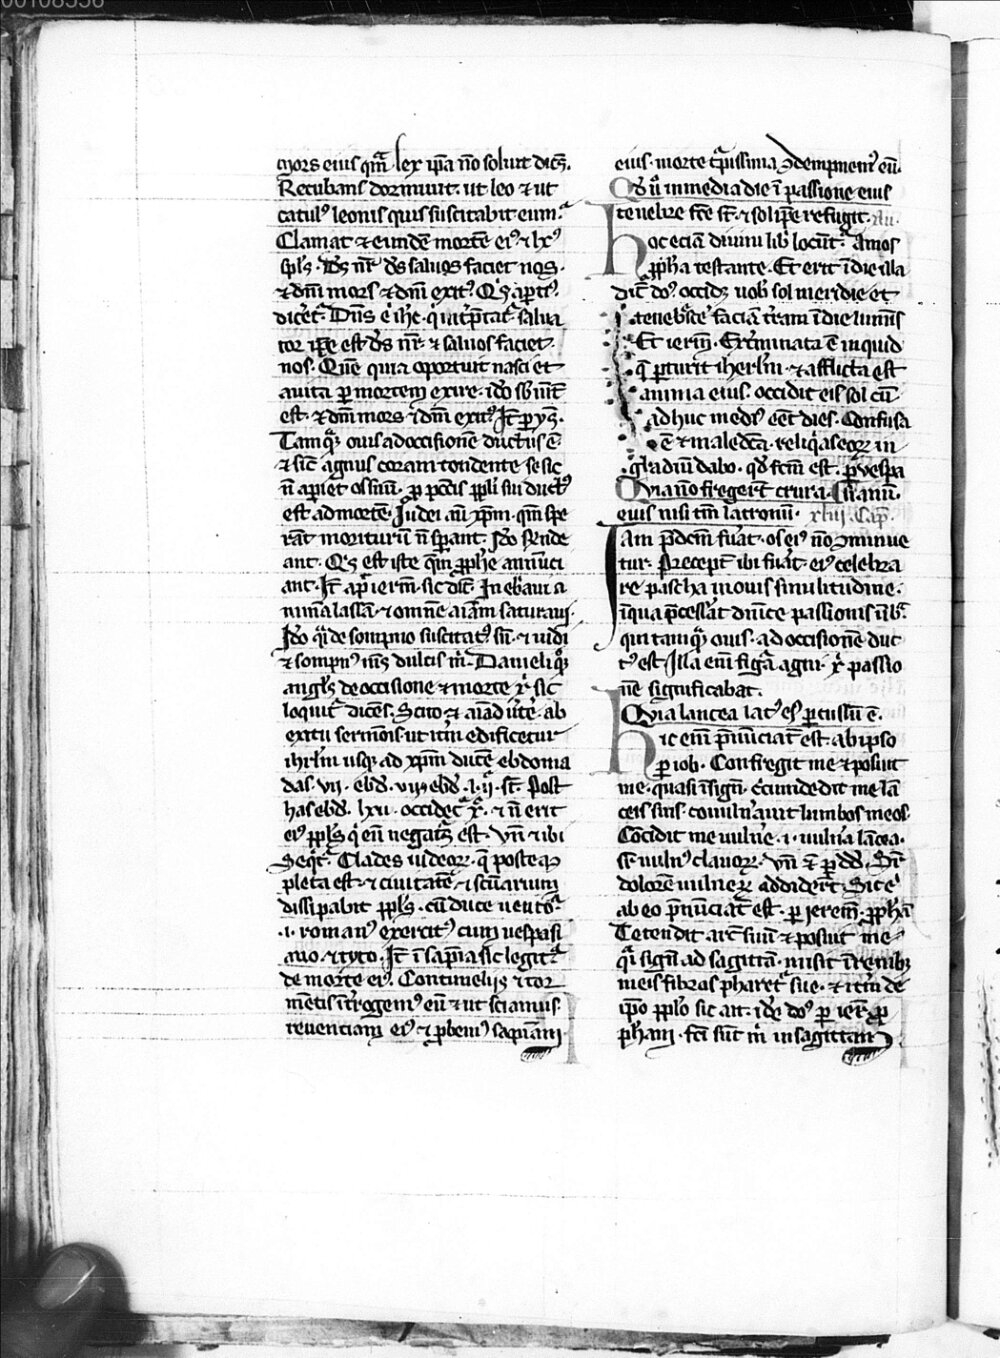 00108356
mors eius qm̄. lex ip̄a nō soluit dicēs.
Recubans dormiuit. ut leo ⁊ ut
catulꝰ leonis quis suscitabit eum.
Clamat ⁊ eundē mortē eiꝰ ⁊
Ds̄ nr̄ ds̄ saluos faciet nos.
⁊ dn̄i mors ⁊ dn̄i exitꝰ.
Dn̄s ē salua
tor ip̄e est ds̄ nr̄ ⁊ saluos faciet
nos. Quē quia oportuit nasci et
auita ꝑ mortem exire. ido
est. ⁊ dn̄i mors ⁊ dn̄i exitꝰ. It̄ ꝑ ys̄.
Tamqͣꝫ ouis ad occisionē ductus ē
⁊ sic̄ agnus coram tondente se sic
n̄ apiet os suū. ductꝰ
est ad mortē. Iudei aū xp̄m. quē spe
rāt moriturū n̄ sperant.
ant. Qis est iste quē ꝓphe annūci
ant. It̄ ap̄ ierem̄. sic dic̄. Inebriaui a
nimā lassā. ⁊ omnē aīam saturaui.
Ido qͣsi de sompno suscitatꝰ sū. ⁊ uidi
⁊ sompnꝰ mꝰ dulcis m̄. Danieli qͦꝫ
angl̄s de occisione ⁊ morte xͥ sic
loquit̄ dicēs. Scito ⁊ aīaduerte. ab
exitu sermōis. ut itm̄ edificetur
ihrl̄m usqꝫ ad xp̄m ducē ebdoma
das. vii. ebd̄. ⁊ ebd̄. l. ii. st̄. Post
has ebd̄. lxii. occidet̄ xͨ. ⁊ n̄ erit
eiꝰ ppl̄s qͥ eū negatꝰꝰ est. Vn̄ ⁊ ibi
Seqt̄. Clades iudeoꝝ. q̄ postea
pleta est. ⁊ ciuitatē ⁊ scūarium
dissipabit ppl̄s. cū duce uentꝰͦ
.i. romanꝰ exercitꝰ cum uespasi
ano. ⁊ tyto. It̄ ī sap̄ia sic legitͬ
de morte eiꝰ. Contumeliis ⁊ tor
mētis īt̄rogemꝰ eū ⁊ ut sciamus.
reuerentiam eiꝰ ⁊ ꝓbemꝰ sapīam
eius. morte tͥpissima ꝯdempnemꝰ eū.
Qd̄ ū in media die ī passione eius
tenebre fc̄e st̄. ⁊ sol ip̄e refugit.
hoc eciam diuini libͥ locūt̄. Amos
ꝓpha testante. Et erit ī die illa
dic̄ dꝰs occidꝫ uobͥ sol meridie et
tenebrescē faciā t̄ram ī die luminis
Et ierem̄. Ext̄minata ē inquid
q̄ ꝑturit iherl̄m. ⁊ afflicta est
anima eius. occidit eis sol cū
adhuc mediꝰ eēt dies. Confusa
ē ⁊ maledc̄a. reliqͣs eoꝝ in
gladiū dabo. qd̄ fc̄m est. ꝑ uespa
Quia nō fregerūt crura.
eius nisi tm̄ latronū. xliii. Cap̄.
Iam p̄dc̄m fuāt. os eiꝰ nō ꝯminue
tur. Precept̄ ibi fuāt. eiꝰ celebra
re pascha in ouis similitudine.
ī qua p̄cessāt dn̄ice passionis ūbͣ.
qui tamqͣꝫ ouis. ad occisionē duc
tꝰ est. Illa enī figͣ agni. xͥ passio
nē significabat.
Quia lancea latꝰ eiꝰ ꝑcussū ē.
hic enī p̄nūciatꝰ est. ab ipso
ꝑ iob. Confregit me ⁊ posuit
me. quasi ī signū. circundedit me lā
ceis suis. cōuulnauit lumbos meos.
Cōcidit me uulnē. .i. uulnͣa lācea.
sr̄ uulnꝰ clauoꝝ. Vn̄ ⁊ ꝑ dd̄. Sr̄
dolorē uulneꝝ addiderūt.
ab eo p̄nūciat̄ est. ꝑ ierem̄. ꝓphā
Tetendit arc̄ suū ⁊ posuit me
qͣsi signū ad sagittā. misit ī renibꝫ
meis filios pharetͬ sue. ⁊ itm̄ de
ip̄o pplo sic ait. ide dꝰs ꝑ ier̄. ꝓ
pham. fc̄i sūt m̄ in sagittam